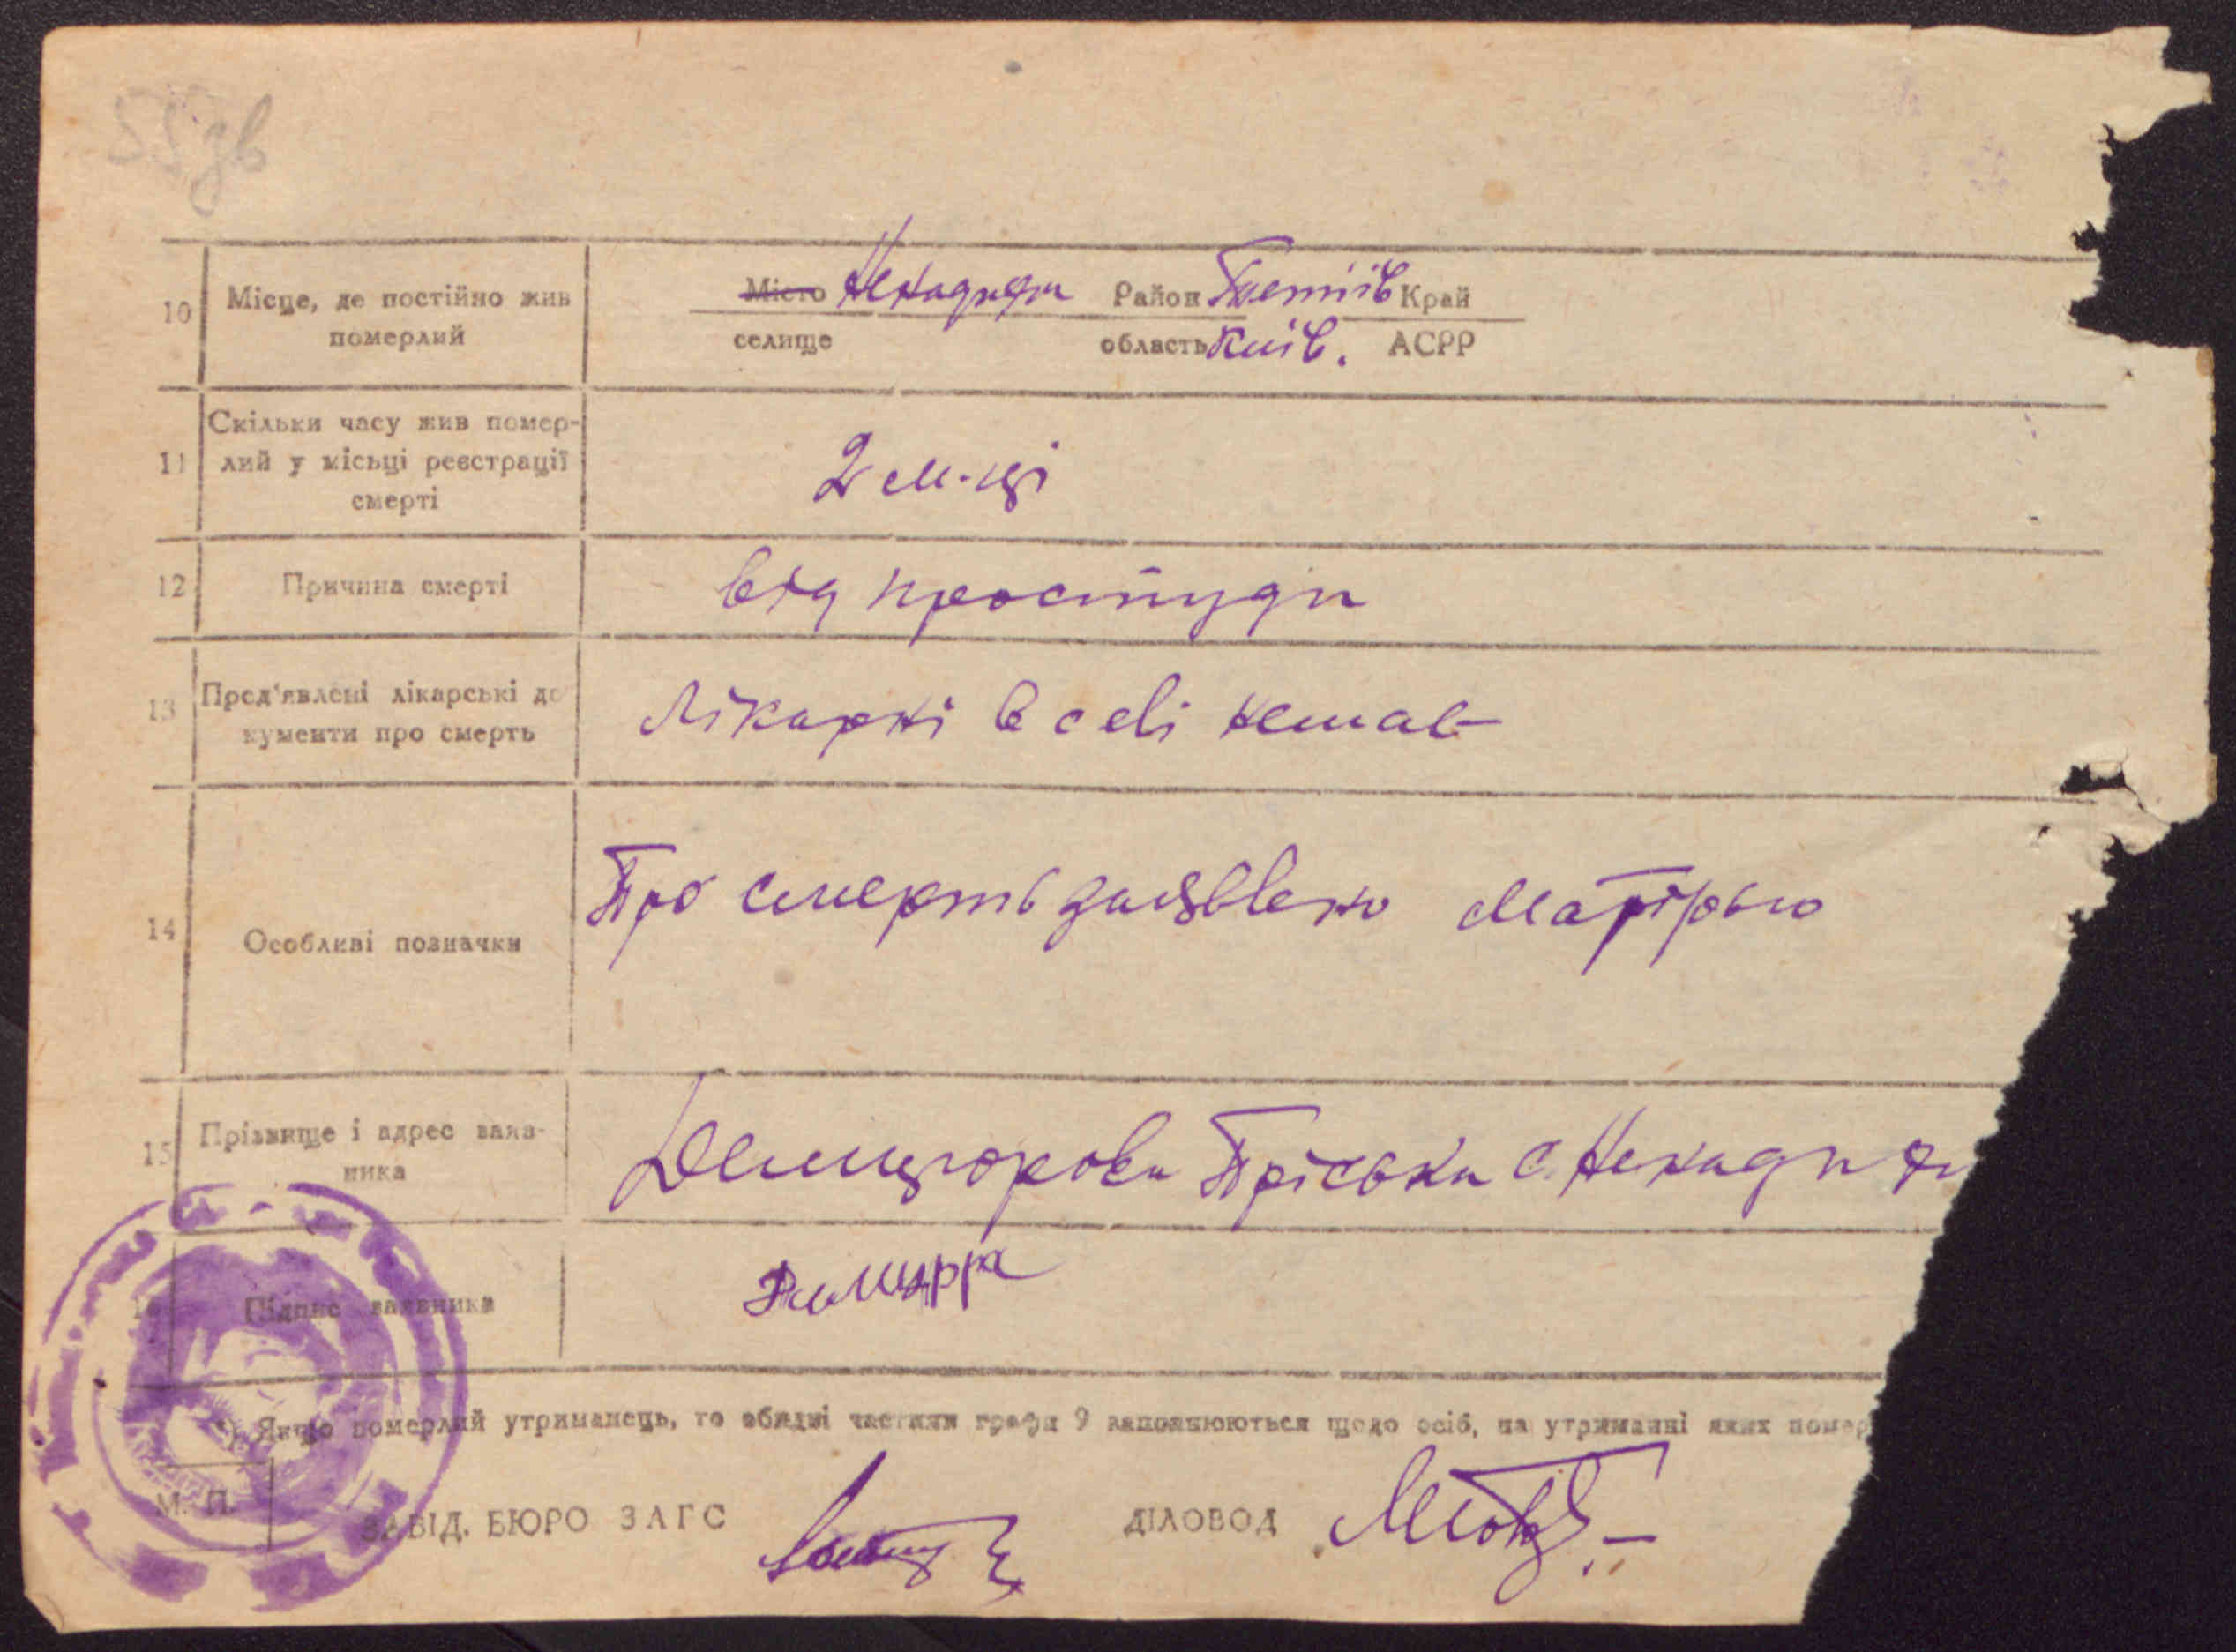 55 зв
10 Місце, де постійно жив померлий Місто Ненадихи Район Тетіїв Край
селище область Київ. АСРР
11 Скільки часу жив помер-
лий у місьці реєстрації
смерті 2 м-ці
12 Причина смерті від простуди
13 Пред'явлені лікарські до
кументи про смерть Лікарні в селі немає
14 Особливі позначки Про смерть заявлено Матірью
15 Прізвище і адрес заяв-
ника Пріська с. Ненадихи
16 Підпис заявника
*) Якщо померлий утриманець, то обидві частини графи 9 заповнюються щодо осіб, на утриманні яких помер
М. П.
ЗАВІД. БЮРО ЗАГС ДІЛОВОД